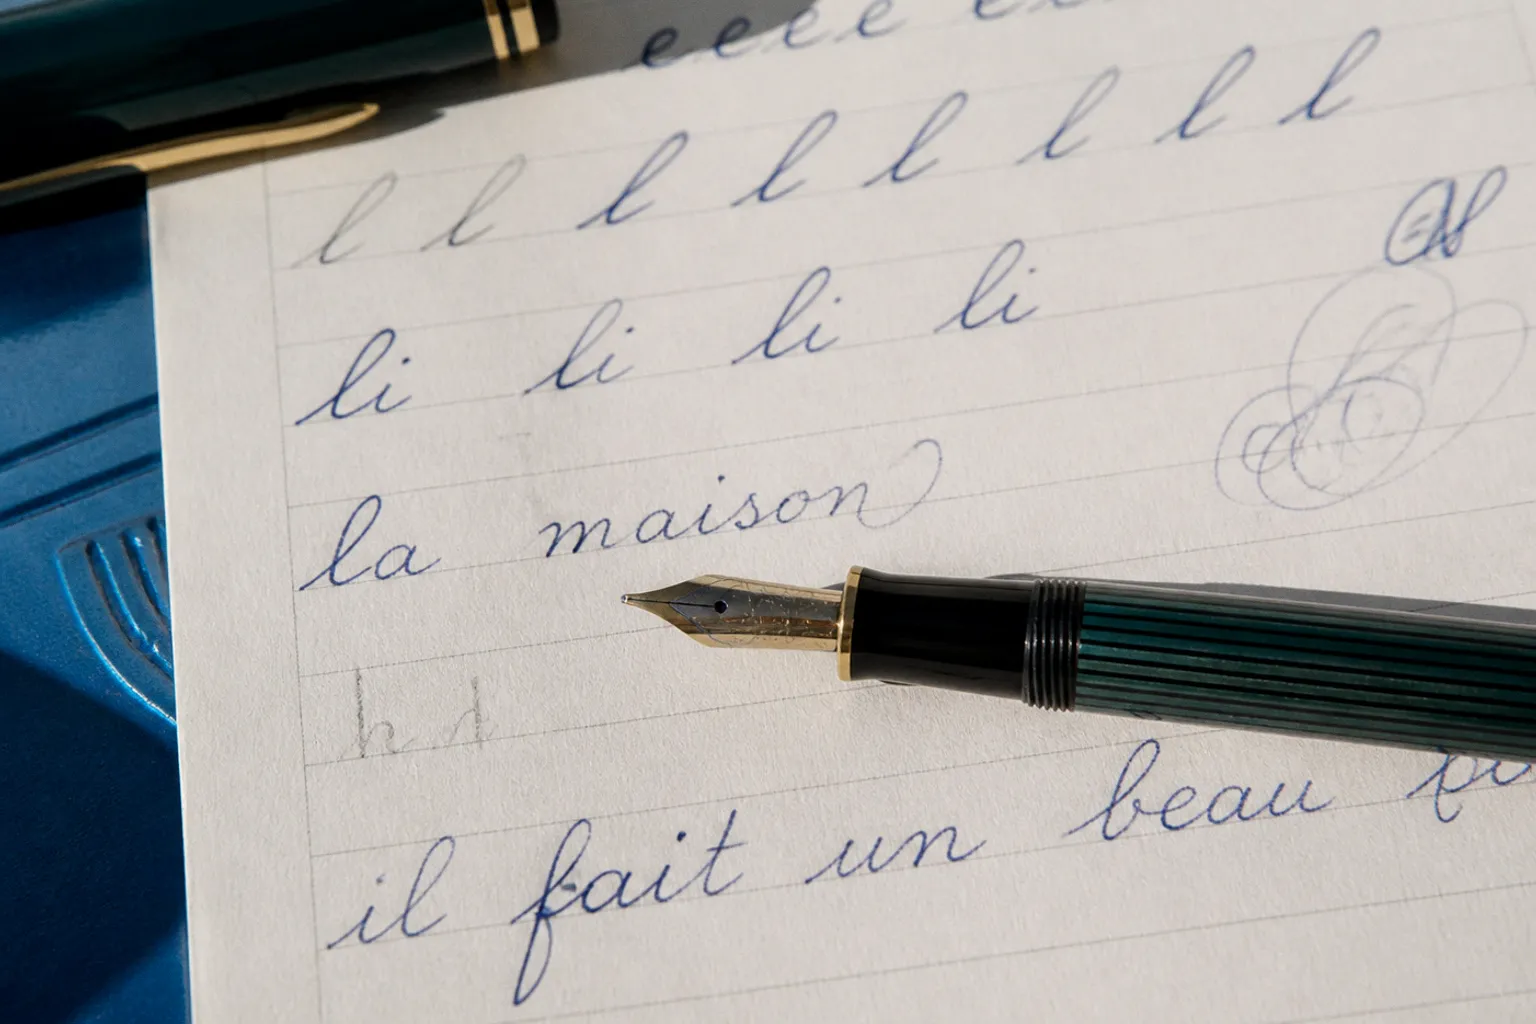 eeee
l l l l l l l l l
li li li li
la maison
h
il fait un beau